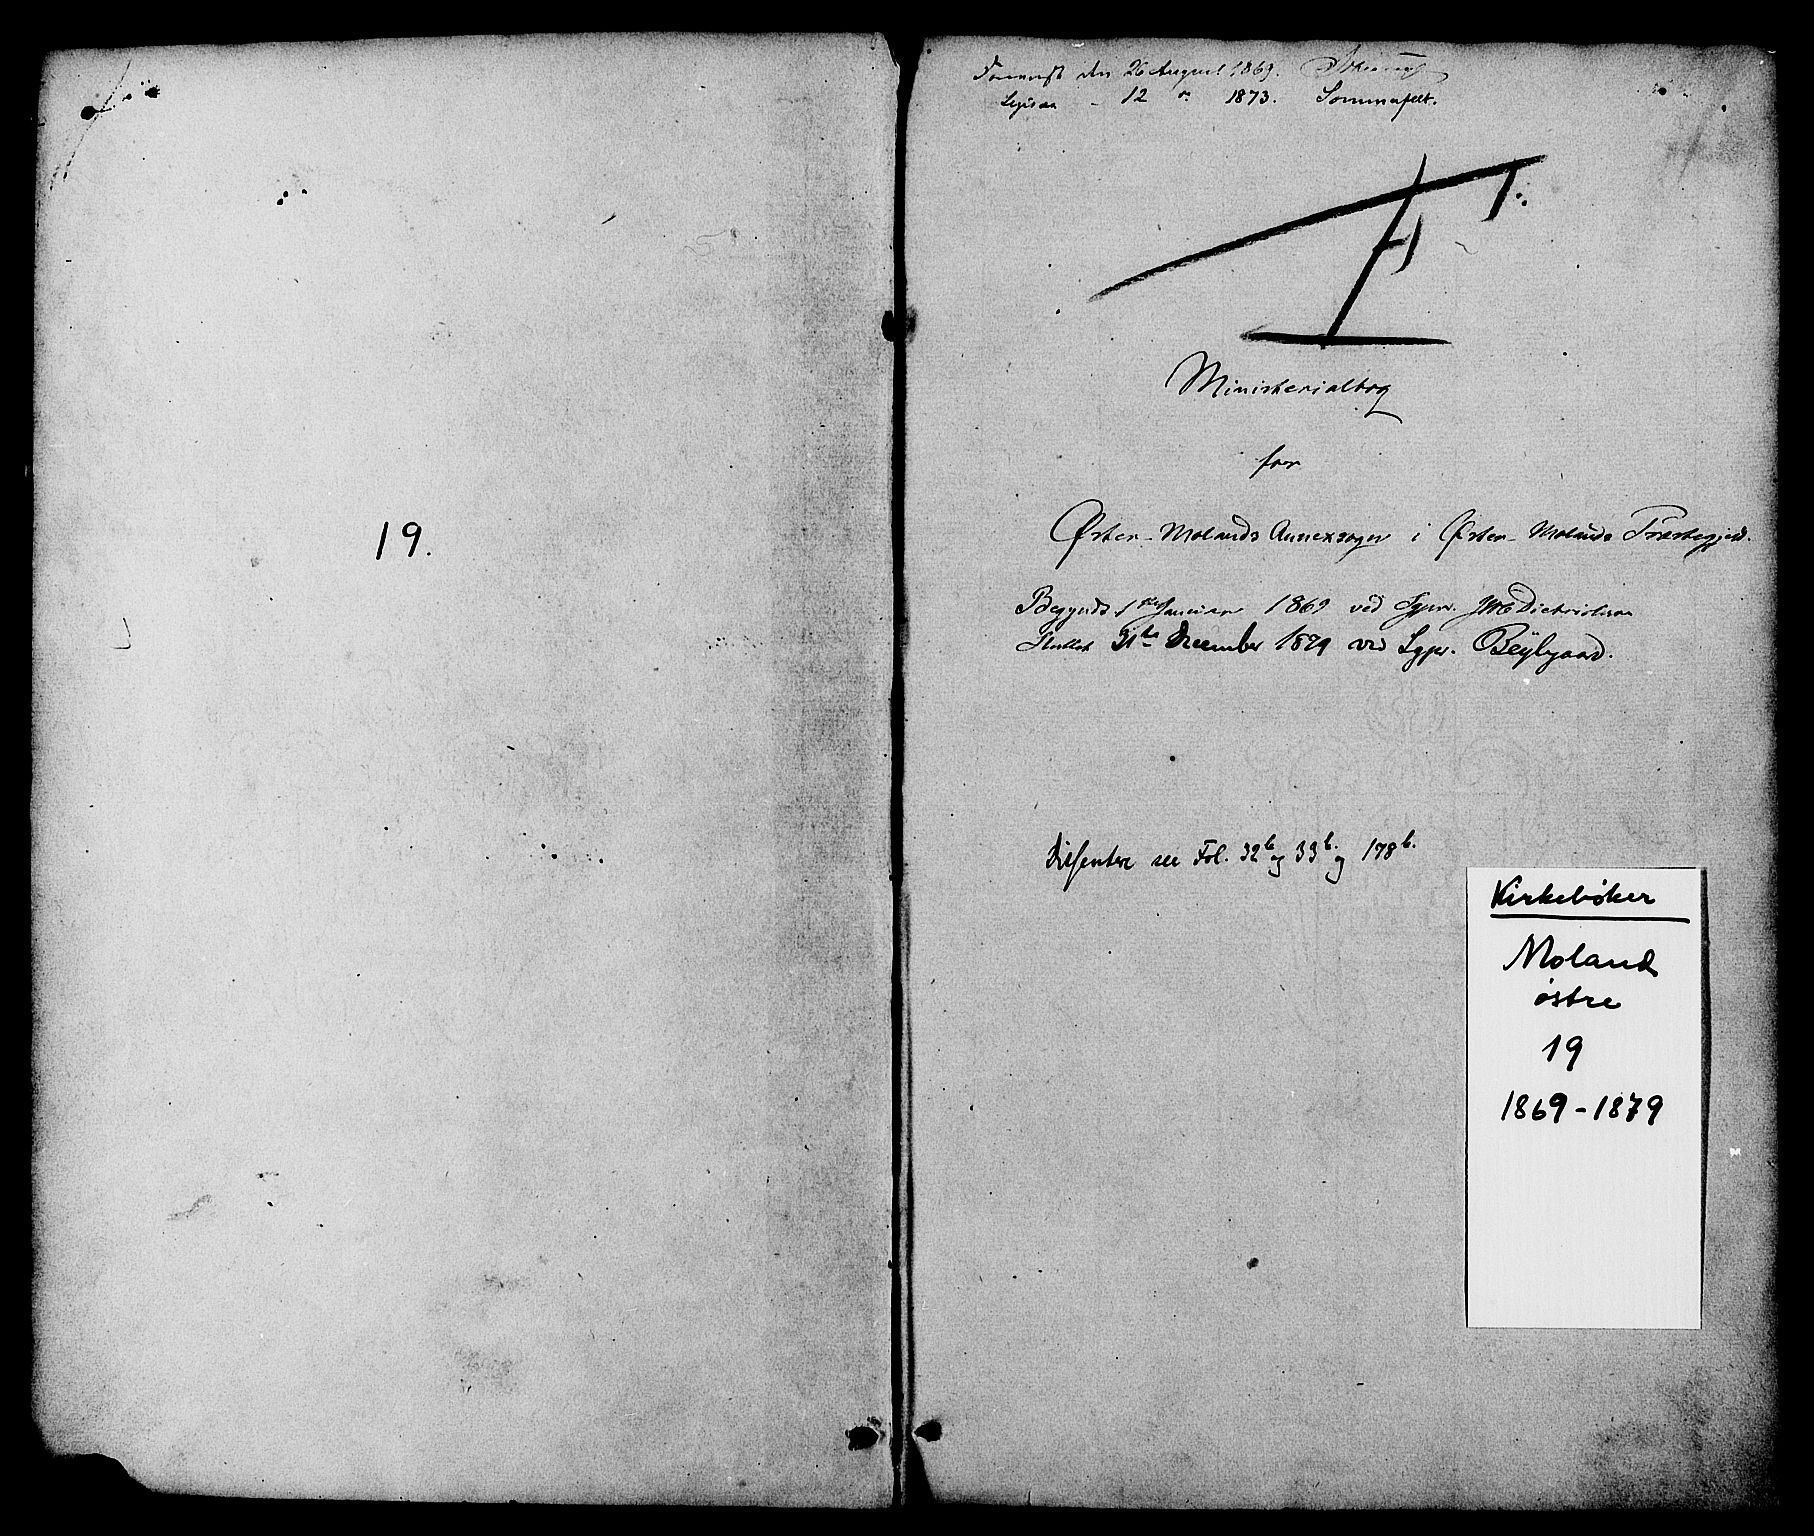 19.
den 26 August 1869.
12 1873. Sommerfelt.
Ministerialbog
for
Øster-Molands Annexsogn i Øster-Molands Præstegjeld.
Begyndt 1ste Januar 1869 ved Sgpr. Dietrichson
Sluttet 31te December 1879 ved Sgpr.
Dissentere see Fol. 32b og 33b. og 178b.
Kirkebøker
Moland
østre
19
1869-1879